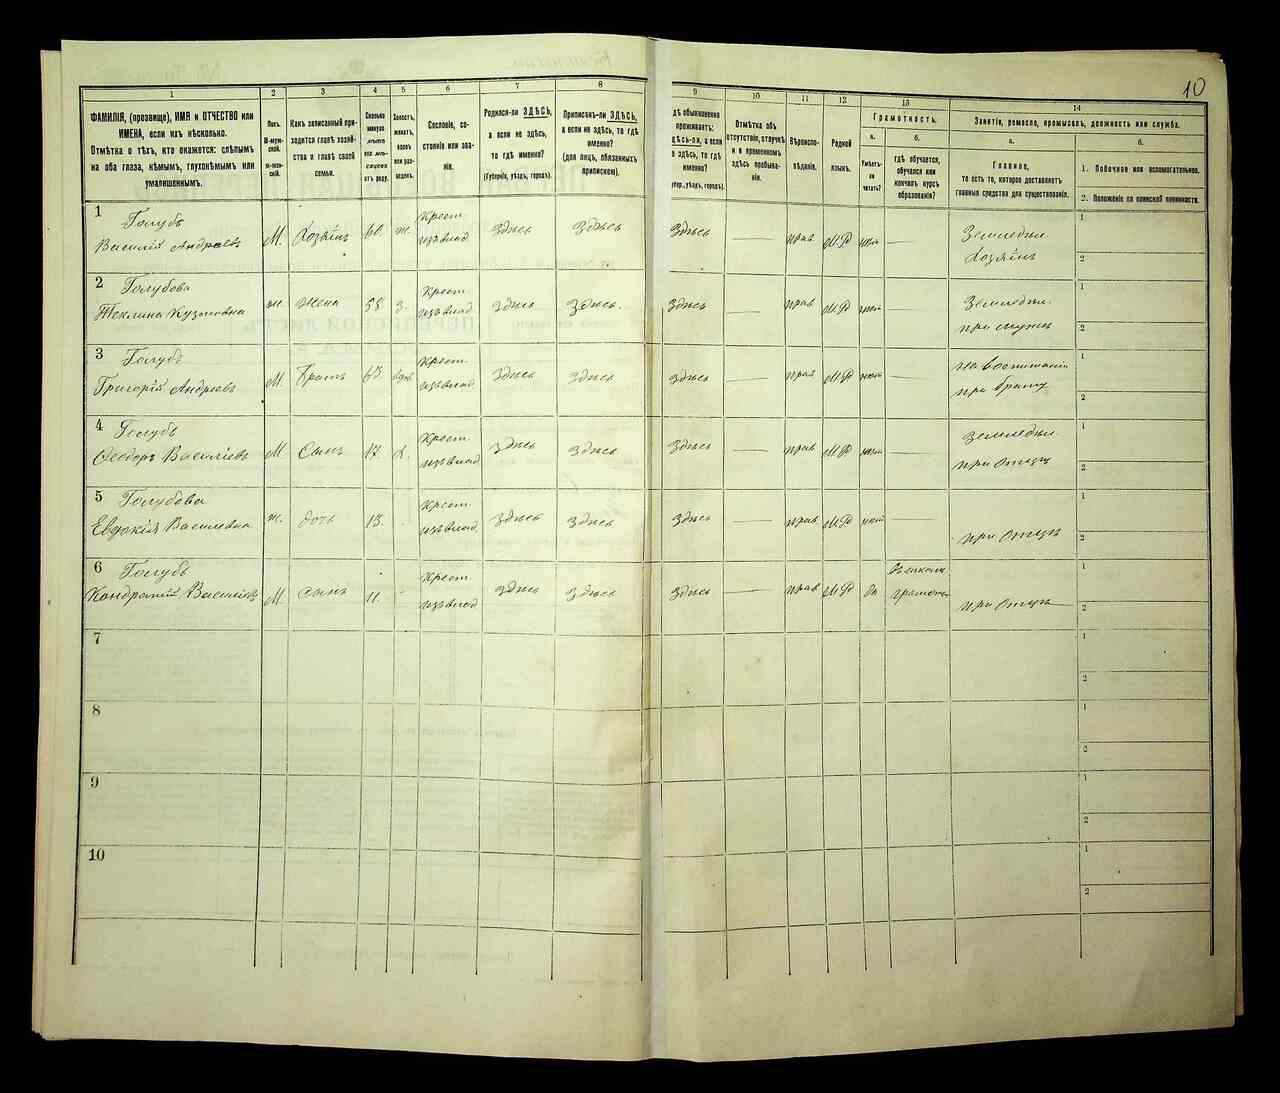 10
1
2
3
4
5
6
7
8
9
10
11
12
13
14
ФАМИЛІЯ, (прозвище), ИМЯ и ОТЧЕСТВО или
ИМЕНА, если ихъ нѣсколько.
Отмѣтка о тѣхъ, кто окажется: слѣпымъ
на оба глаза, нѣмымъ, глухонѣмымъ или
умалишеннымъ.
Полъ.
М-муж-
ской.
Ж-жен-
скій.
Какъ записанный при-
ходится главѣ хозяй-
ства и главѣ своей
семьи.
Сколько
минуло
лѣтъ
или мѣ-
сяцевъ
отъ роду.
Холостъ,
женатъ,
вдовъ
или раз-
веденъ.
Сословіе, со-
стояніе или зва-
ніе.
Родился-ли ЗДѢСЬ,
а если не здѣсь,
то гдѣ именно?
(Губернія, уѣздъ, городъ).
Приписанъ-ли ЗДѢСЬ,
а если не здѣсь, то гдѣ
именно?
(для лицъ, обязанныхъ
припискою).
дѣ обыкновенно
проживаетъ:
здѣсь-ли, а если
е здѣсь, то гдѣ
именно?
убер., уѣздъ, городъ).
Отмѣтка объ
отсутствіи, отлучкѣ
и о временномъ
здѣсь пребыва-
ніи.
Вѣроиспо-
вѣданіе.
Родной
языкъ.
Грамотность.
а.
Умѣетъ-
ли
читать?
б.
гдѣ обучается,
обучался или
кончилъ курсъ
образованія?
Занятіе, ремесло, промыселъ, должность или служба.
а.
Главное,
то есть то, которое доставляетъ
главныя средства для существованія.
б.
1. Побочное или вспомогательное.
2. Положеніе по воинской повинности.
1 Голубь
Василій Андреевъ М. Хозяинъ 60. ж. Крест. изъ влад. Здѣсь Здѣсь Здѣсь — прав М.Р нѣт — Земледѣл. Хозяинъ 1 2
2 Голубова
Теклина Кузмовна ж. жена 55 З. Крест. изъ влад Здѣсь Здѣсь. Здѣсь — прав М.Р нѣт — Земледѣл. при мужѣ 1 2
3 Голубь
Григорій Андреевъ М. Братъ 63 вдов Крест. изъ влад Здѣсь Здѣсь Здѣсь — прав М.Р нѣт — на воспитаніи при братѣ 1 2
4 Голубь
Ѳеодоръ Василіевъ М Сынъ 17. Х. Крест. изъ влад Здѣсь Здѣсь Здѣсь — прав М.Р нѣт — земледѣл. при Отцѣ 1 2
5 Голубова
Евдокія Василевна ж. дочь 13. Крест. изъ влад Здѣсь Здѣсь Здѣсь — прав М.Р нѣт при Отцѣ 1 2
6 Голубь
Кондратій Василіевъ М. сынъ 11. Крест. изъ влад Здѣсь Здѣсь Здѣсь — прав М.Р да грамоты при Отцѣ 1 2
7 1 2
8 1 2
9 1 2
10 1 2